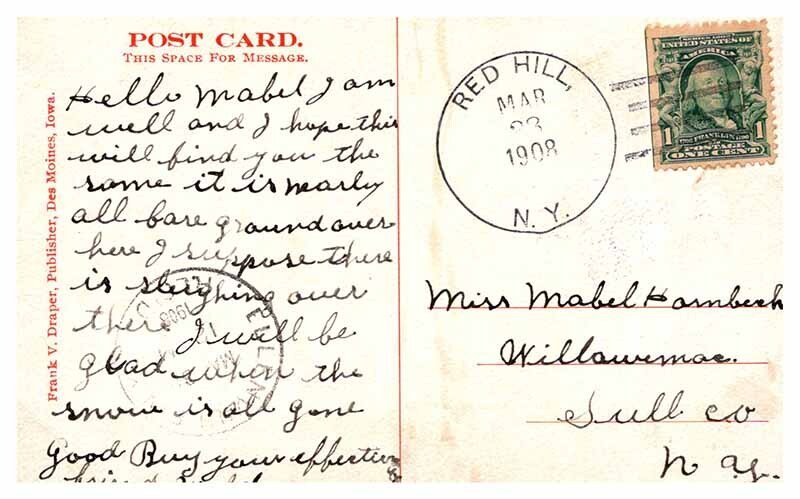 POST CARD.
THIS SPACE FOR MESSAGE.
Frank V. Draper, Publisher, Des Moines, Iowa.
Hello Mabel I am
well and I hope this
will find you the
same it is nearly
all bare ground over
here I suppose there
is sleighing over
there I will be
glad when the
snow is all gone
Good Buy your effective
friend
RED HILL,
MAR
23
1908
N. Y.
SERIES 1902
UNITED STATES OF
AMERICA
1 FRANKLIN 1
POSTAGE
ONE CENT
Miss Mabel Hornbeck
Willowemoc.
Sull co
N Y.
1908